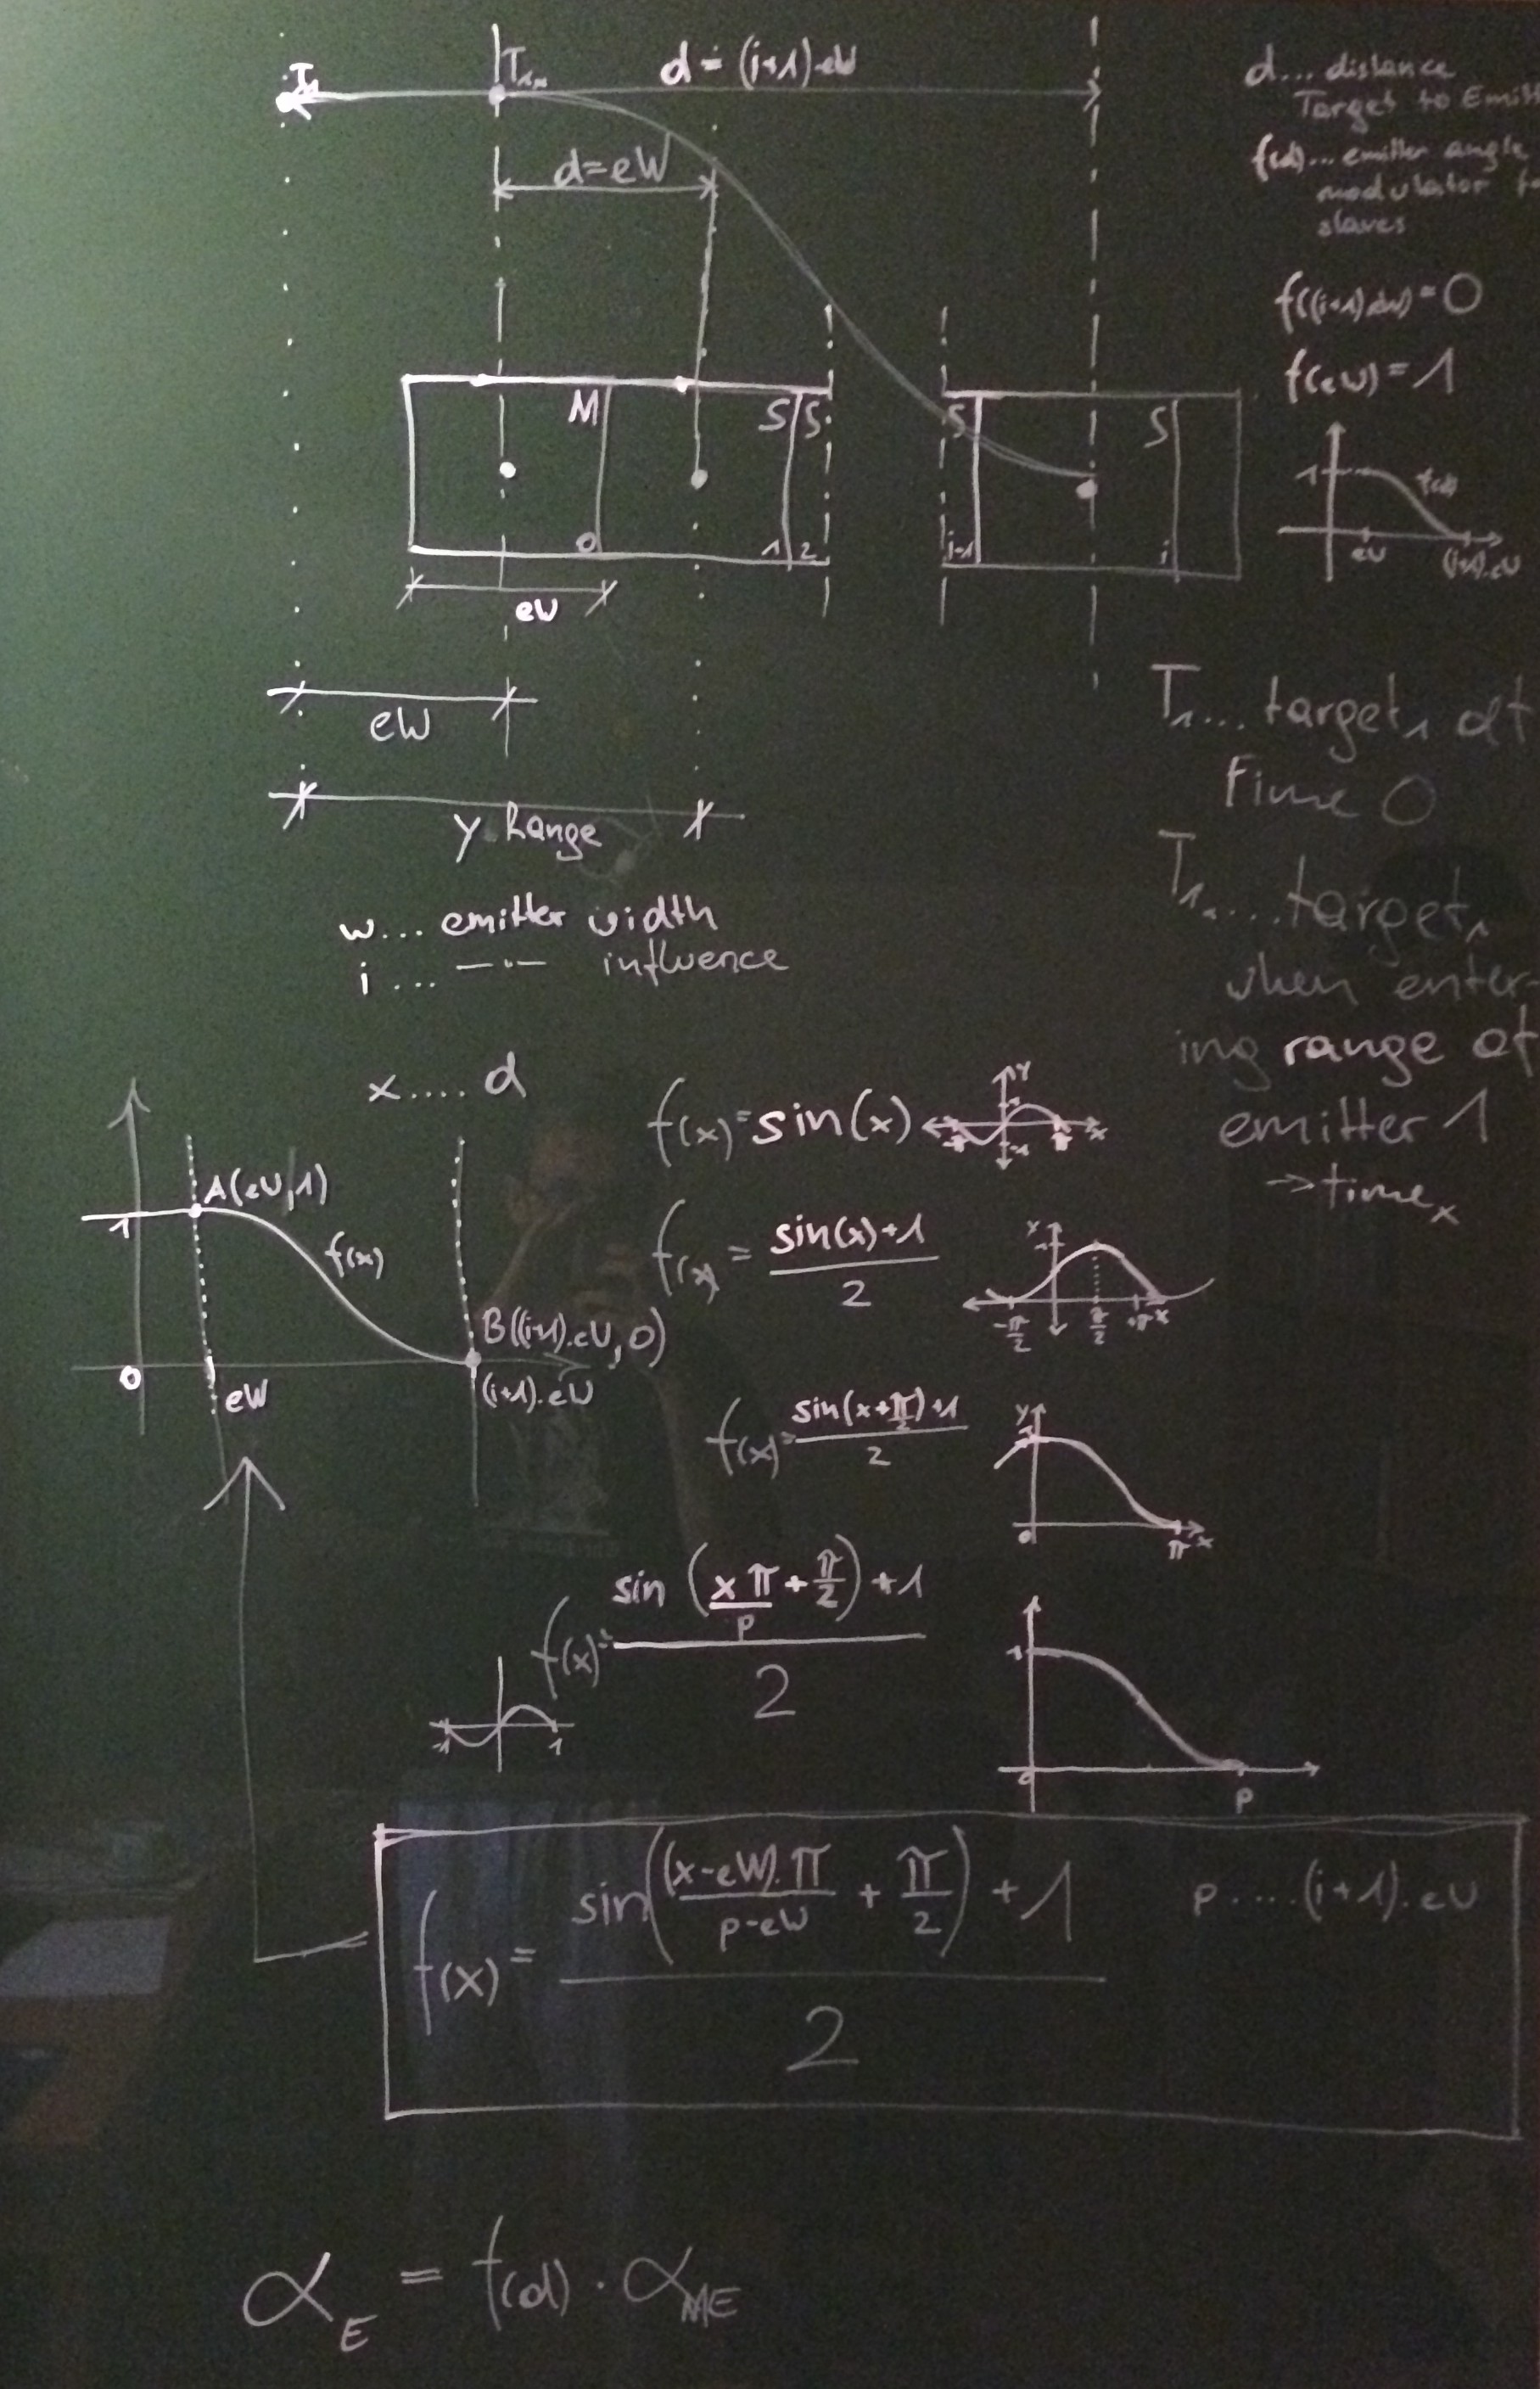 T₁
T₁ₓ
d = (i+1)·eW
d=eW
M
S
S
S
S
0
1
2
i-1
i
eW
eW
y Range
w... emitter width
i ... —·— influence
d... distance
Target to
f(d)... emitter angle
modulator
slaves
f((i+1)eW)=0
f(eW)=1
1
f(d)
eW
(i+1).eW
T₁... target₁ at
Time 0
T₁ₓ....target₁
when enter-
ing range of
emitter 1
→timeₓ
x.... d
A(eW,1)
1
f(x)
B((i+1).eW,0)
0
eW
(i+1).eW
f(x)=sin(x)
Y
1
-π
π
x
-1
f(x) = (sin(x)+1)/2
1
-π/2
π/2
+π
x
f(x)=(sin(x+π/2)+1)/2
y
1
0
π
x
f(x)=(sin(xπ/p+π/2)+1)/2
-1
1
1
0
p
f(x)=(sin((x-eW).π/(p-eW) + π/2)+1)/2
p....(i+1).eW
α_E = f(d)·α_ME